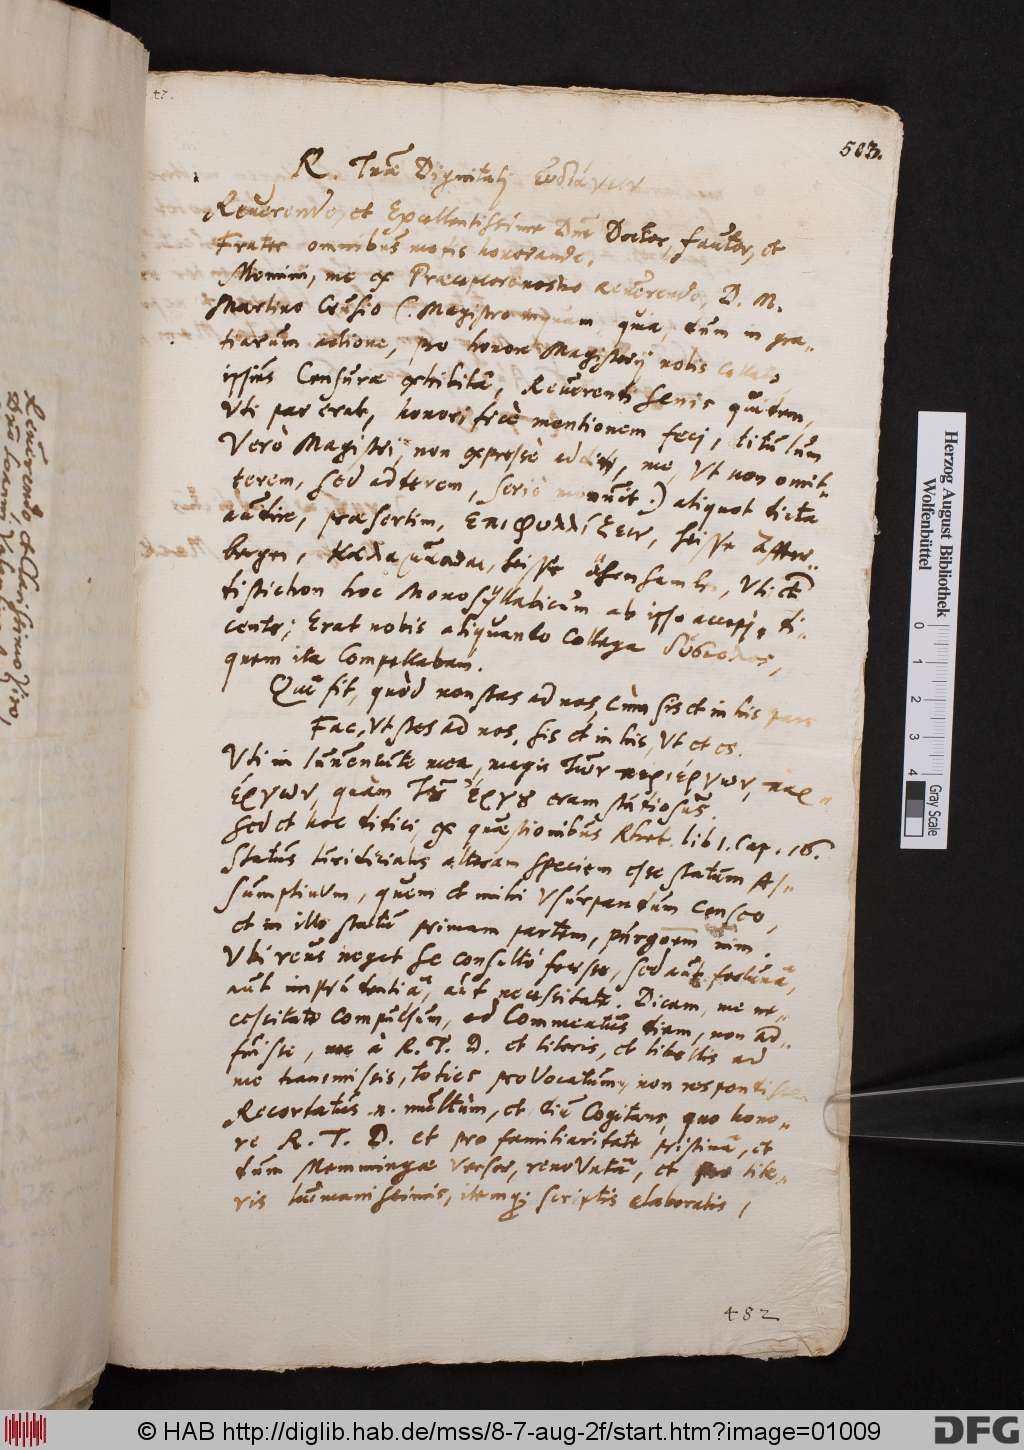 503.
R. Tuae Dignitati
Reverende, et Excellentissime Dne Doctor, fautor, et
Frater omnibus modis honorande,
Memini, me ex Praeceptore nostro reverendo, D. M.
Martino Crusio (: Magistro inquam, quia, dum in gra-
tiarum actione, pro honore Magisterij nobis collato,
ipsius Censurae exhibita, Reverendi senis quidem,
uti par erat, honorificè mentionem feci, titulum
Verò Magistri, non expressè addidi, me, Ut non omit-
terem, sed adderem, seriò monuit :) aliquot dicta
audire, praesertim, ἐπιφυλλίζειν, heisse Affter-
bergen, heisse, Uti et
distichon hoc Monosyllabicum ab ipso accepi, di-
cente; Erat nobis aliquando Collega δύσκολος,
quem ita Compellabam.
Quî fit, quòd non stas ad nos, cùm sis et in his pars
Fac, Ut stes ad nos, sis et in his, Ut et es.
Uti in Iuventute mea, magis τῶν περιέργων, παρ-
έργων, quàm τȣ̃ ἔργȣ eram studiosus.
Sed et hoc didici, ex quaestionibus Rhet. lib 1. Cap. 16.
Status Iuridicialis alteram speciem esse statum As-
sumptivum, quem et mihi Usurpandum censeo,
et in illo statu primam partem, purgōem nim.
Ubi reus negat se consultò fecisse, sed aut fortuna,
aut imprudentia, aut necessitate. Dicam, me ne-
cessitate compulsum, ad Commeatus diem, non ad-
fuisse, me à R. T. D. et literis, et libellis ad
me transmissis, toties provocatum, non respondisse
Recordatus .n. multùm, et diu Cogitans, quo hono-
re R. T. D. et pro familiaritate pristina, et
dum Memmingae Verser, renovata, et pro lite-
ris humanissimis, itemq; scriptis elaboratis,
482
Reverendo, et Clarissimo Viro,
Herzog August Bibliothek
Wolfenbüttel
0 1 2 3 4
Gray Scale
© HAB http://diglib.hab.de/mss/8-7-aug-2f/start.htm?image=01009
DFG